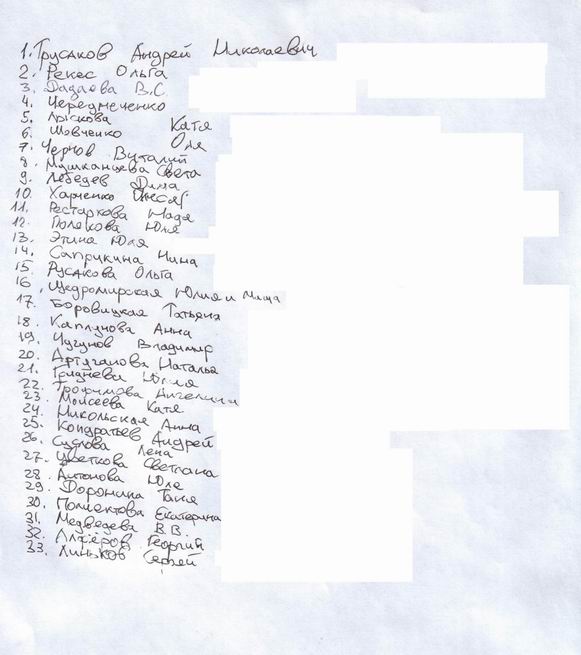 1. Трусаков Андрей Николаевич
2. Рекес Ольга
3. Дадаева В.С.
4. Чередниченко
5. Лыскова Катя
6. Шовченко Оля
7. Чернов Виталий
8. Мушканцева Света
9. Лебедев Дима
10. Харченко Олеся
11. Рестаркова Надя
12. Полякова Юля
13. Этина Юля
14. Сапрукина Нина
15. Русакова Ольга
16. Щедромирская Юлия и Миша
17. Боровицкая Татьяна
18. Каплунова Анна
19. Чугунов Владимир
20. Артуганова Наталья
21. Гриднева Юлия
22. Трофимова Ангелина
23. Моисеева Катя
24. Никольская Анна
25. Кондратьев Андрей
26. Суслова Лена
27. Цветкова Светлана
28. Антонова Юля
29. Доронина Таня
30. Полиектова Екатерина
31. Медведева В.В.
32. Алжеров Георгий
33. Линьков Сергей